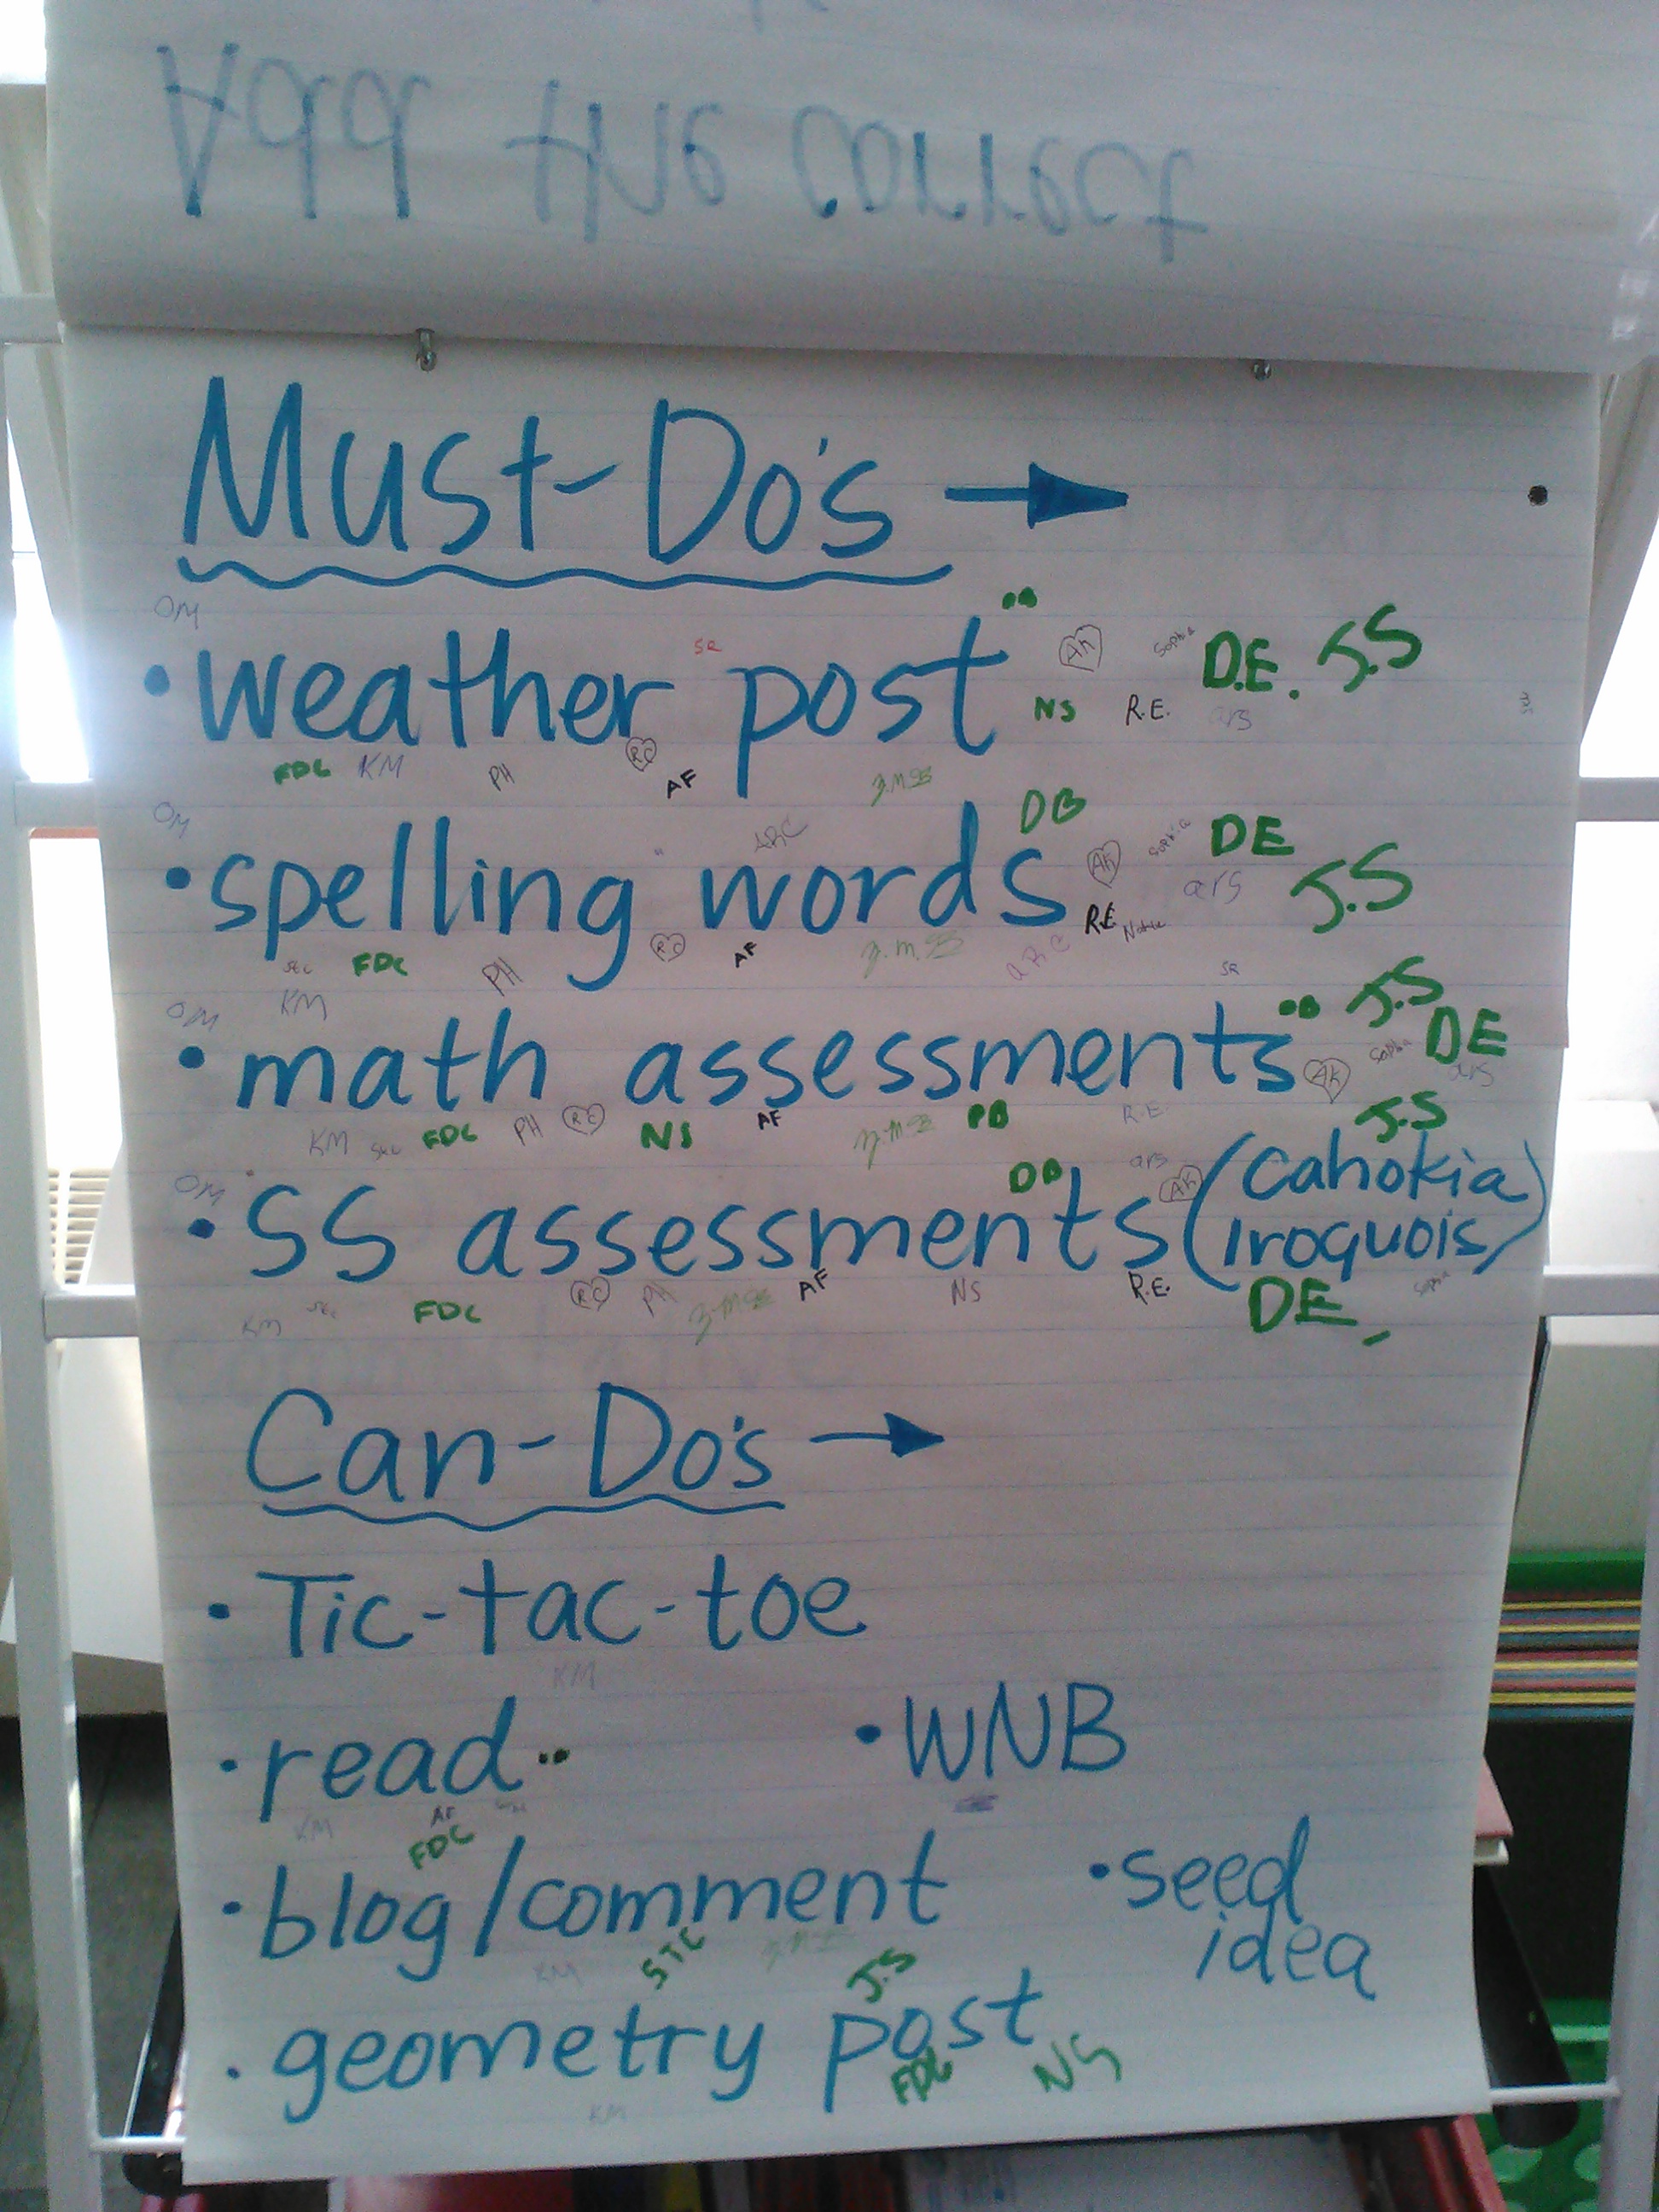 Add the correct
Must-Do's →
OM
DB
• weather post
SR
AK
Sophia
D.E.
J.S
NS
R.E.
ars
FDC
KM
PH
RC
AF
OM
ARC
DB
• spelling words
AK
Sophia
DE
ars
J.S
R.E.
FDC
PH
RC
AF
ARC
KM
SR
OM
• math assessments
J.S
DE
AK
Sophia
ars
KM
FDC
PH
RC
NS
AF
R.E.
J.S
OM
DB
ars
AK
• SS assessments (Cahokia
Iroquois)
KM
FDC
RC
PH
AF
NS
R.E.
DE,
Sophia
Can-Do's →
• Tic-tac-toe
KM
• read • WNB
KM
AF
FDC
• blog/comment • seed
idea
KM
STC
J.S
• geometry post
FDC
NS
KM